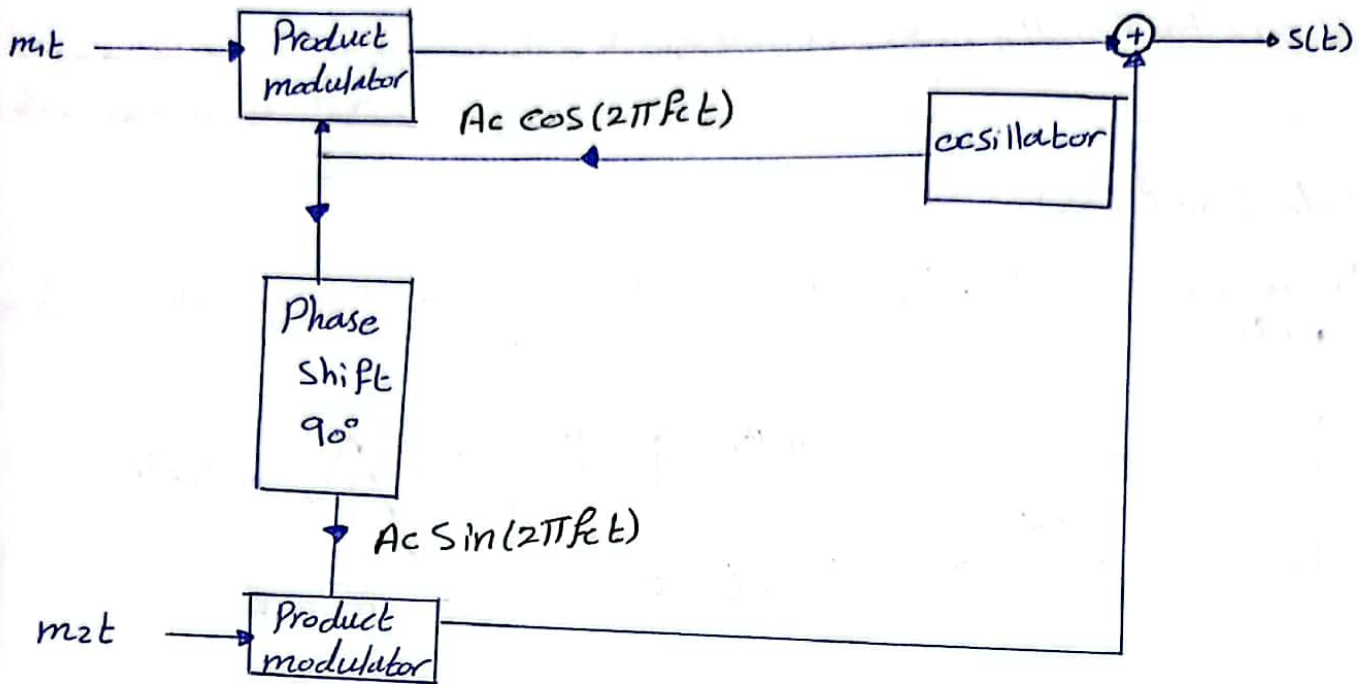 m1t
Product
modulator
+
S(t)
Ac cos(2πfct)
ocsillator
Phase
Shift
90°
Ac Sin(2πfct)
m2t
Product
modulator